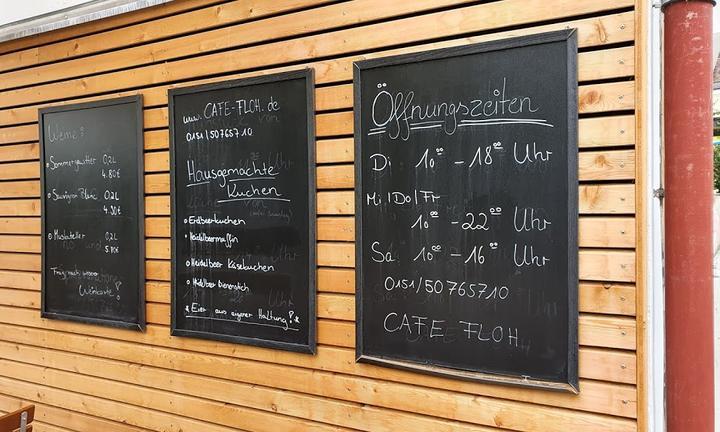 Weine:
Sommergewitter 0,2L
4.80€
Sauvignon Blanc 0,2L
4.90€
Muskateller 0,2L
5.10€
Fragt nach unserer
Weinkarte!
www.CAFE-FLOH.de
0151/50765710
Hausgemachte
Kuchen
Erdbeerkuchen
Heidelbeermuffin
Heidelbeer Käsekuchen
Heidelbeer Bienenstich
* Eier aus eigener Haltung! *
Öffnungszeiten
Di 10⁰⁰ - 18⁰⁰ Uhr
Mi/Do/Fr
10⁰⁰ - 22⁰⁰ Uhr
Sa 10⁰⁰ - 16⁰⁰ Uhr
0151/50765710
CAFE FLOH